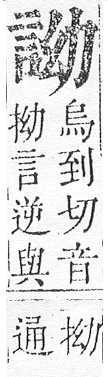 詏
烏到切音
拗言逆與
拗
通